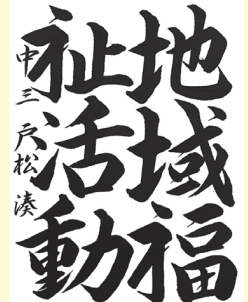 地域福
祉活動
中三 戸松湊